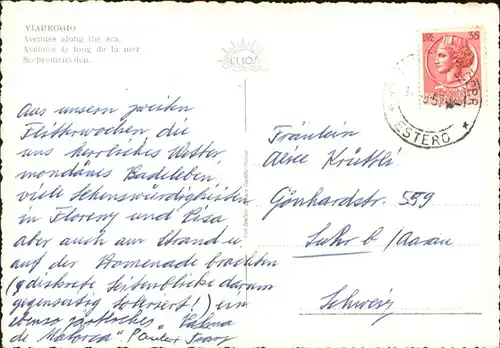 VIAREGGIO
Avenues along the sea.
Avenues le long de la mer.
Seepromenaden.
ELIOS
LIRE 35
ESTERO
Aus unsern zweiten
Flitterwochen die
uns herrliches Wetter
mondänes Badeleben,
viele Sehenswürdigkeiten
in Florenz und Pisa
aber auch am Strand u.
auf der Promenade brachten
(diskrete Seitenblicke darum
gegenseitig toleriert!) ein
ebenso zärtliches
de Mallorca"
Fräulein
Krüttli
Gönhardstr. 559
Suhr b/Aarau
Schweiz